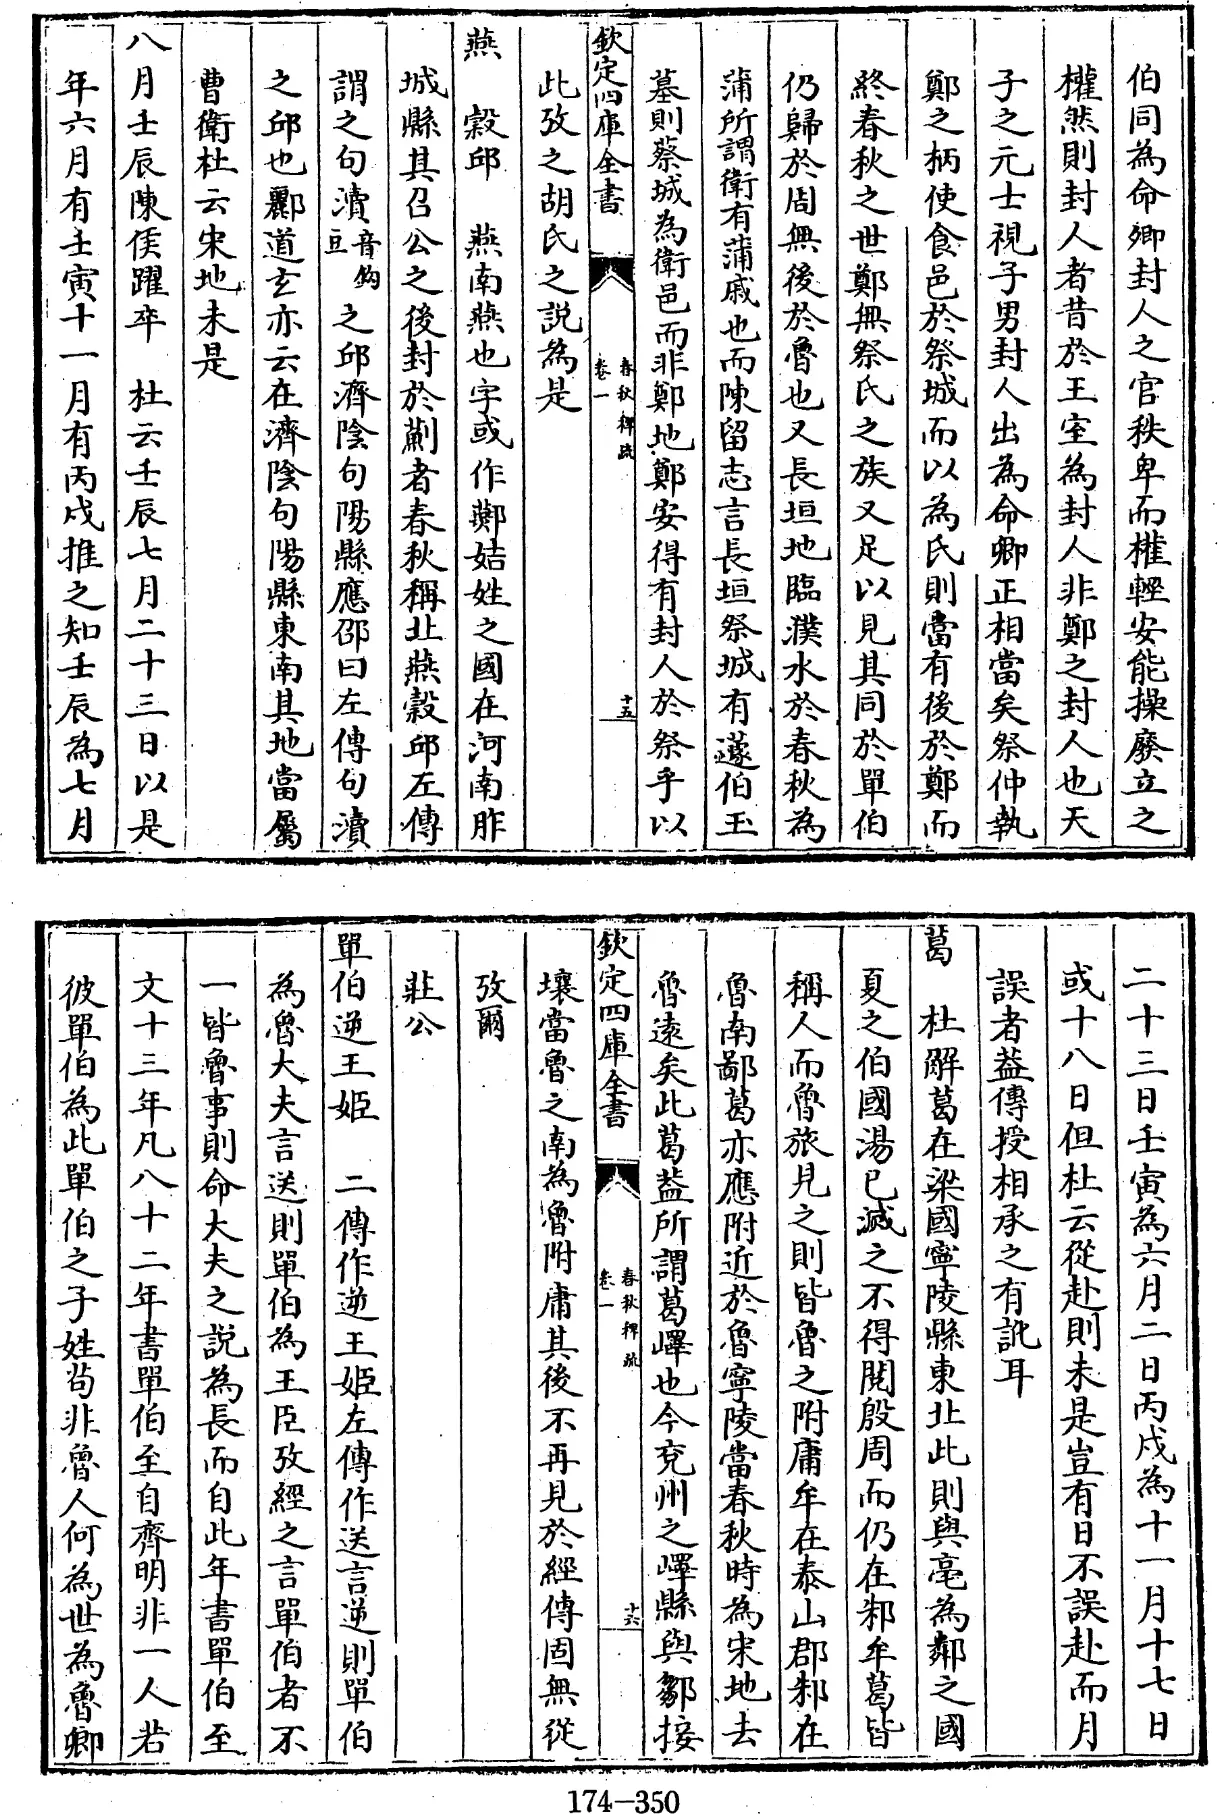 伯同為命卿封人之官秩卑而權輕安能操廢立之
權然則封人者昔於王室為封人非鄭之封人也天
子之元士視子男封人出為命卿正相當矣祭仲執
鄭之柄使食邑於祭城而以為氏則當有後於鄭而
終春秋之世鄭無祭氏之族又足以見其同於單伯
仍歸於周無後於魯也又長垣地臨濮水於春秋為
蒲所謂衛有蒲戚也而陳留志言長垣祭城有蘧伯玉
墓則蔡城為衛邑而非鄭地鄭安得有封人於祭乎以
欽定四庫全書
春秋稗疏
卷一
十五
此攷之胡氏之說為是
燕 穀邱 燕南燕也字或作鄭姞姓之國在河南胙
城縣其召公之後封於薊者春秋稱北燕穀邱左傳
謂之句瀆音鈎豆之邱濟陰句陽縣應邵曰左傳句瀆
之邱也酈道玄亦云在濟陰句陽縣東南其地當屬
曹衛杜云宋地未是
八月壬辰陳侯躍卒 杜云壬辰七月二十三日以是
年六月有壬寅十一月有丙戌推之知壬辰為七月
二十三日壬寅為六月二日丙戌為十一月十七日
或十八日但杜云從赴則未是豈有日不誤赴而月
誤者葢傳授相承之有訛耳
葛 杜解葛在梁國寧陵縣東北此則與亳為鄰之國
夏之伯國湯已滅之不得閱殷周而仍在邾牟葛皆
稱人而魯旅見之則皆魯之附庸牟在泰山郡邾在
魯南鄙葛亦應附近於魯寧陵當春秋時為宋地去
魯遠矣此葛葢所謂葛嶧也今兗州之嶧縣與鄒接
欽定四庫全書
春秋稗疏
卷一
十六
壤當魯之南為魯附庸其後不再見於經傳固無從
攷爾
莊公
單伯逆王姬 二傳作逆王姬左傳作送言逆則單伯
為魯大夫言送則單伯為王臣攷經之言單伯者不
一皆魯事則命大夫之說為長而自此年書單伯至
文十三年凡八十二年書單伯至自齊明非一人若
彼單伯為此單伯之子姓茍非魯人何為世為魯卿
174-350